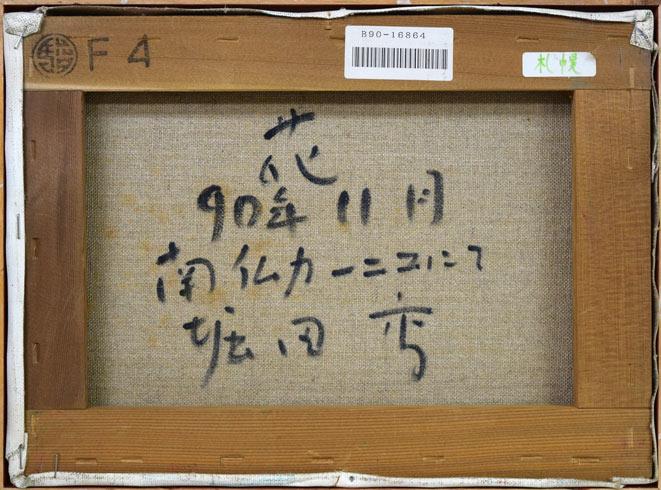 F4
B90-16864
札幌
花
90年11月
南仏カーニュにて
堀田